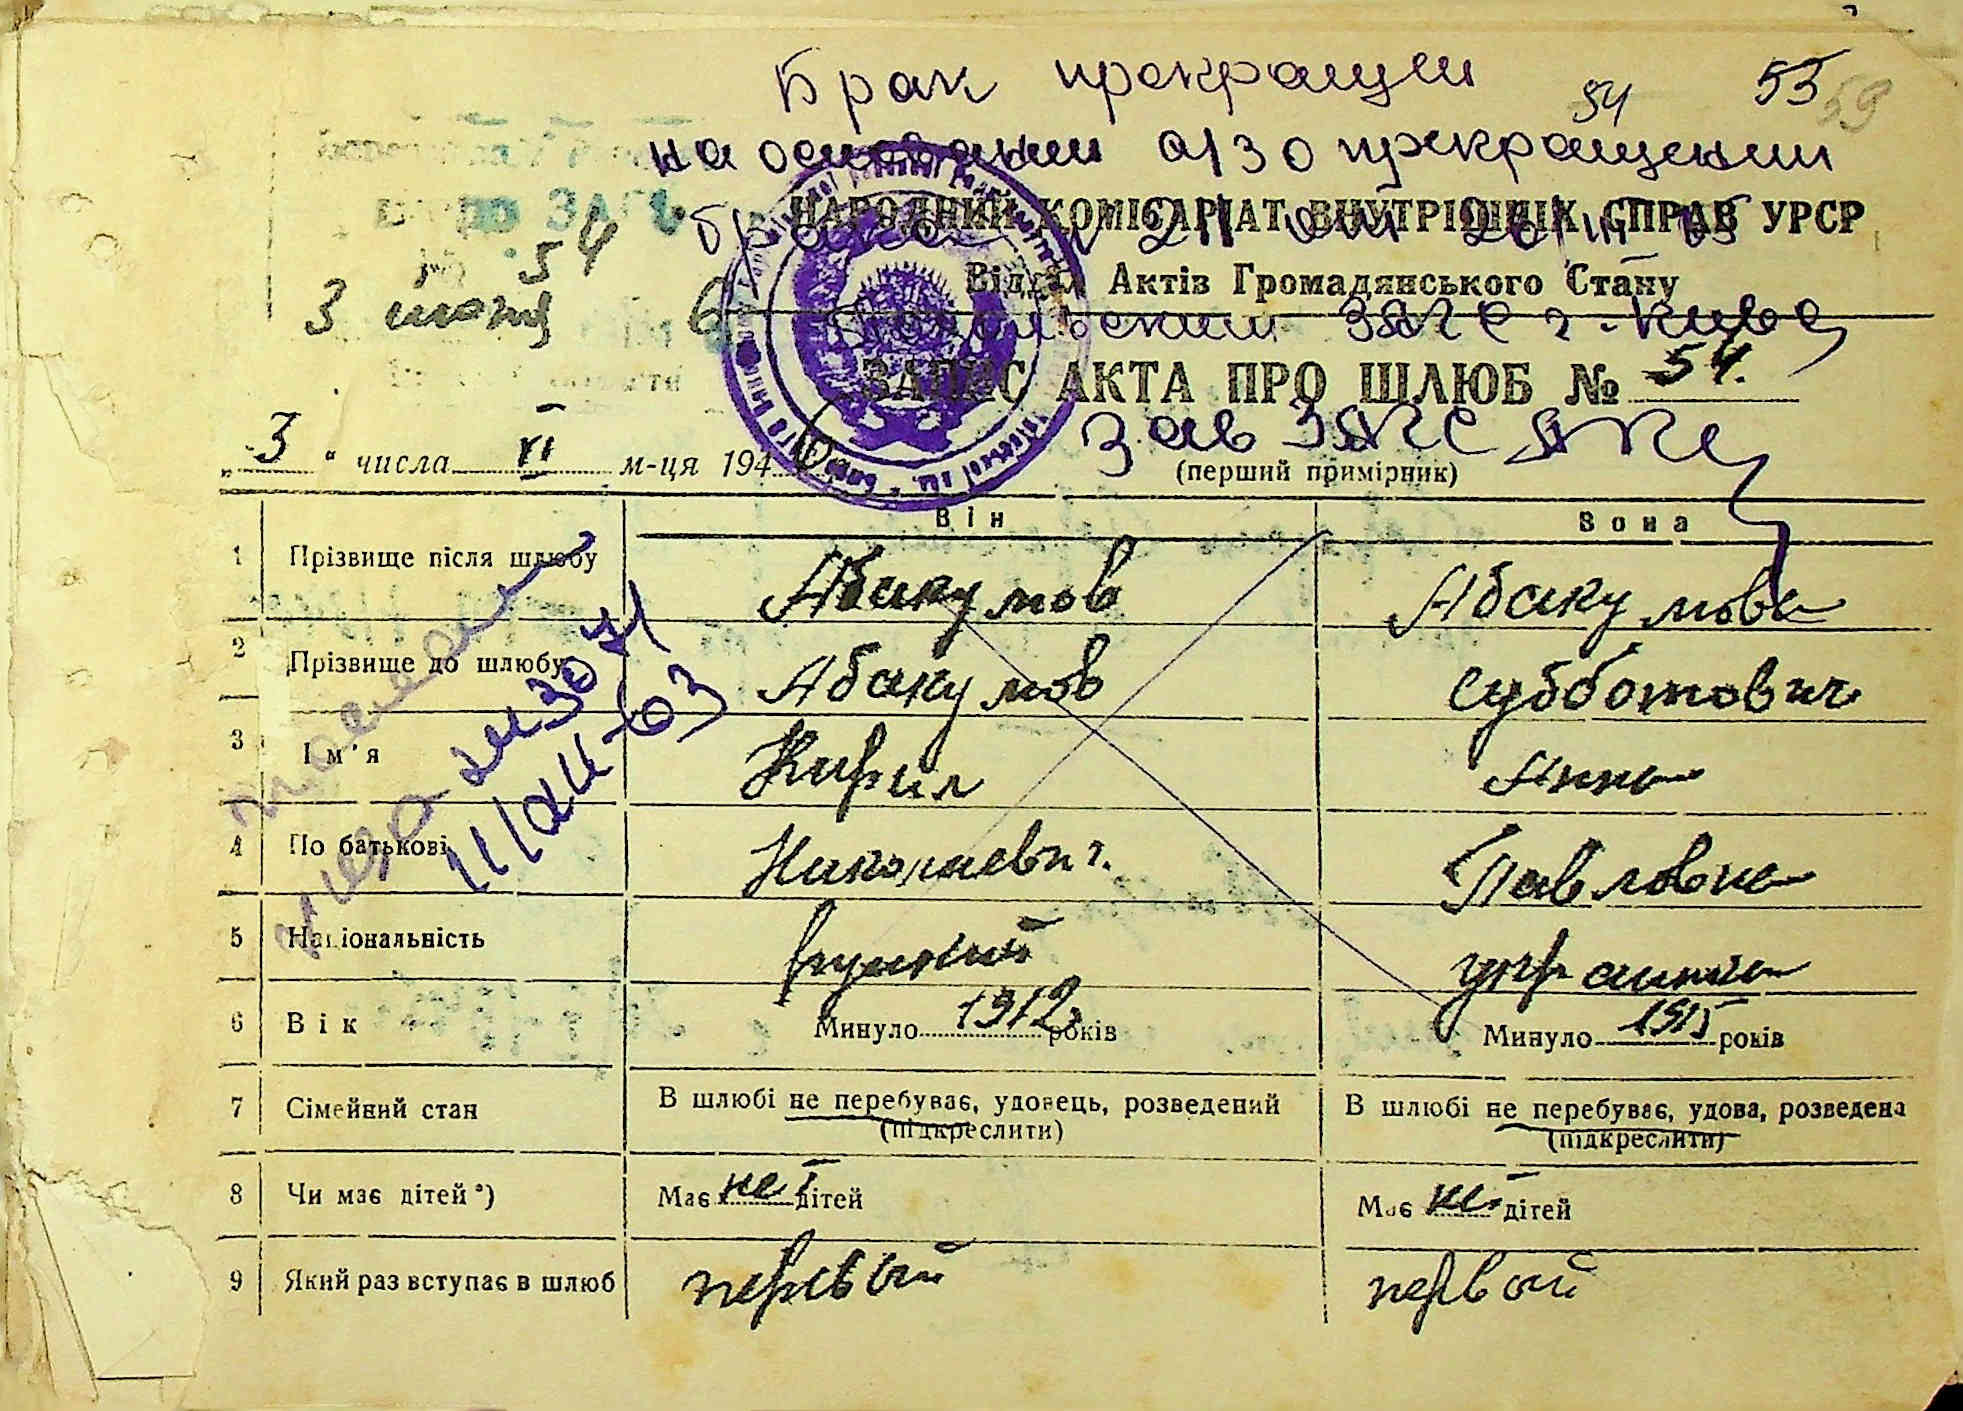 Брак прекращен
54 53 59
на основании а/з о прекращении
НАРОДНИЙ КОМІСАРІАТ ВНУТРІШНІХ СПРАВ УРСР
брака
54
Відділ Актів Громадянського Стану
3 июня 6
ЗАГС г. Киева
ЗАПИС АКТА ПРО ШЛЮБ № 54.
Зав ЗАГС
„ 3 " числа VI м-ця 194
(перший примірник)
Він Вона
1 Прізвище після шлюбу Абакумов Абакумова
2 Прізвище до шлюбу Абакумов Субботович
3 Ім'я Кирил Анна
4 По батькові Николаевич. Павловна
5 Національність русский украинка
6 Вік Минуло 1912 років Минуло 1915 років
7 Сімейний стан В шлюбі не перебуває, удовець, розведений В шлюбі не перебуває, удова, розведена
(підкреслити) (підкреслити)
8 Чи має дітей*) Має нет дітей Має нет дітей
9 Який раз вступає в шлюб первый первый